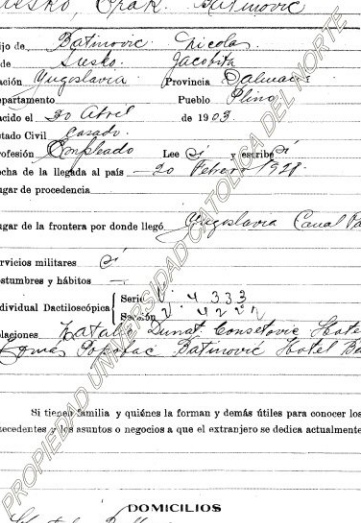 Batinovic
ijo de Batinovic Nicolas
de Susko Jacobita
ación Yugoslavia Provincia Dalmacia
epartamento Pueblo Plino
acido el 20 Abril de 1903.
tado Civil Casado
ofesión Empleado Lee Si y escribe Si
cha de la llegada al país 20 Febrero
ugar de procedencia
ugar de la frontera por donde llegó Yugoslavia Canal Pa
rvicios militares Si
stumbres y hábitos —
dividual Dactiloscópica Serie V. 4 333
Sección V. 4 222
laciones Natalio Lunat. Hote
Tomas Batinović Hotel Ba
Si tienen familia y quiénes la forman y demás útiles para conocer los
ecedentes y los asuntos o negocios a que el extranjero se dedica actualmente
DOMICILIOS
PROPIEDAD UNIVERSIDAD CATOLICA DEL NORTE